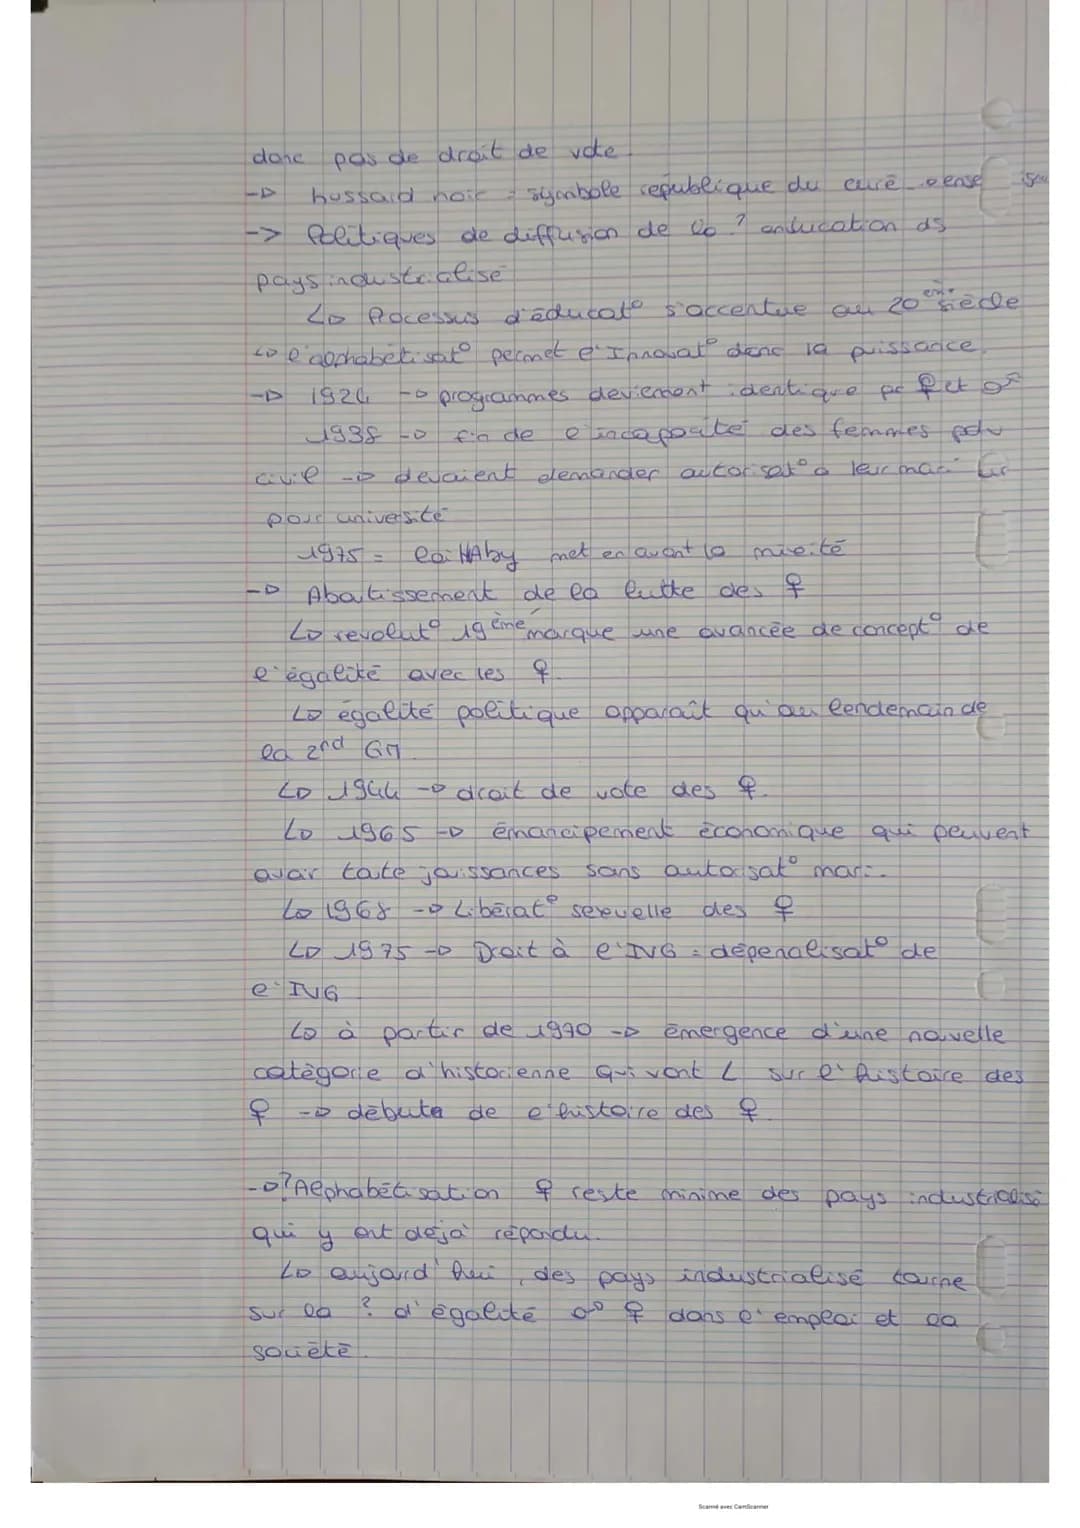 donc pas de droit de vote.
-> hussard noir = symbole republique du curé pense
-> Politiques de diffusion de la ? anducation ds
pays industrialisé
↳ Processus d'éducat° s'accentue au 20 ème siècle
↳ l'alphabétisat° permet l'Innovat° donc la puissance.
-> 1924 -> programmes deviennent identique pr ♀ et ♂
1938 -> fin de l'incapacité des femmes
civil -> devaient demander autorisat° a leur mari
pour université
1975 = loi HAby met en avant la mixité
-> Aboutissement de la lutte des ♀
↳ revolut° 19 ème marque une avancée de concept° de
l'égalité avec les ♀.
↳ égalité politique apparaît qu'au lendemain de
la 2nd GM.
↳ 1944 -> droit de vote des ♀.
↳ 1965 -> émancipement économique qui peuvent
avoir toute jouissances sans autorisat° mari.
↳ 1968 -> Libérat° sexuelle des ♀
↳ 1975 -> Droit à l'IVG = dépénalisat° de
l'IVG
↳ à partir de 1990 -> émergence d'une nouvelle
catégorie d'historienne qui vont L sur l'histoire des
♀ -> débute de l'histoire des ♀.
-> ? Alphabétisation ♀ reste minime des pays industrialisé
qui y ont déjà répondu.
↳ aujourd'hui, des pays industrialisé tourne
sur la ? d'égalité ♂ ♀ dans l'emploi et la
société.
Scanné avec CamScanner